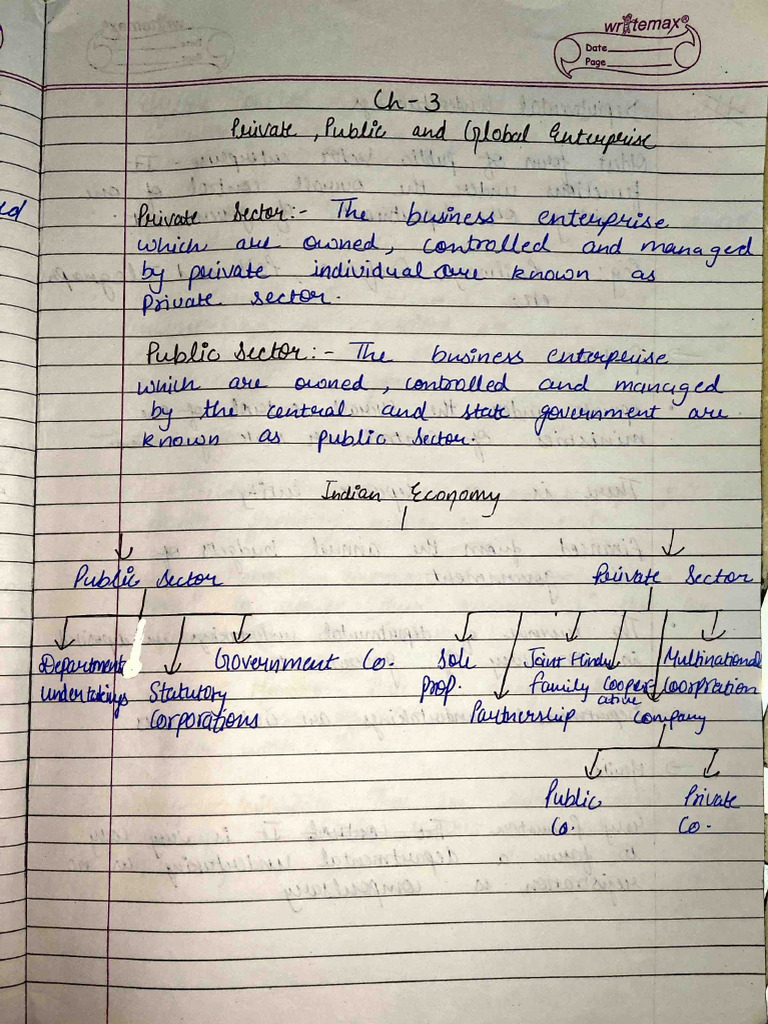 writemax®
Date
Page
Ch - 3
Private, Public and Global Enterprise
ed
Private Sector:- The business enterprise
which are owned, controlled and managed
by private individual are known as
Private sector.
Public Sector:- The business enterprise
which are owned, controlled and managed
by the central and state government are
known as public sector.
Indian Economy
Public Sector
Private Sector
Department
undertakings
Statutory
Corporations
Government Co.
Sole
Prop.
Partnership
Joint Hindu
family
Cooper-
ative
Company
Multinational
Coorpration
Public
Co.
Private
Co.